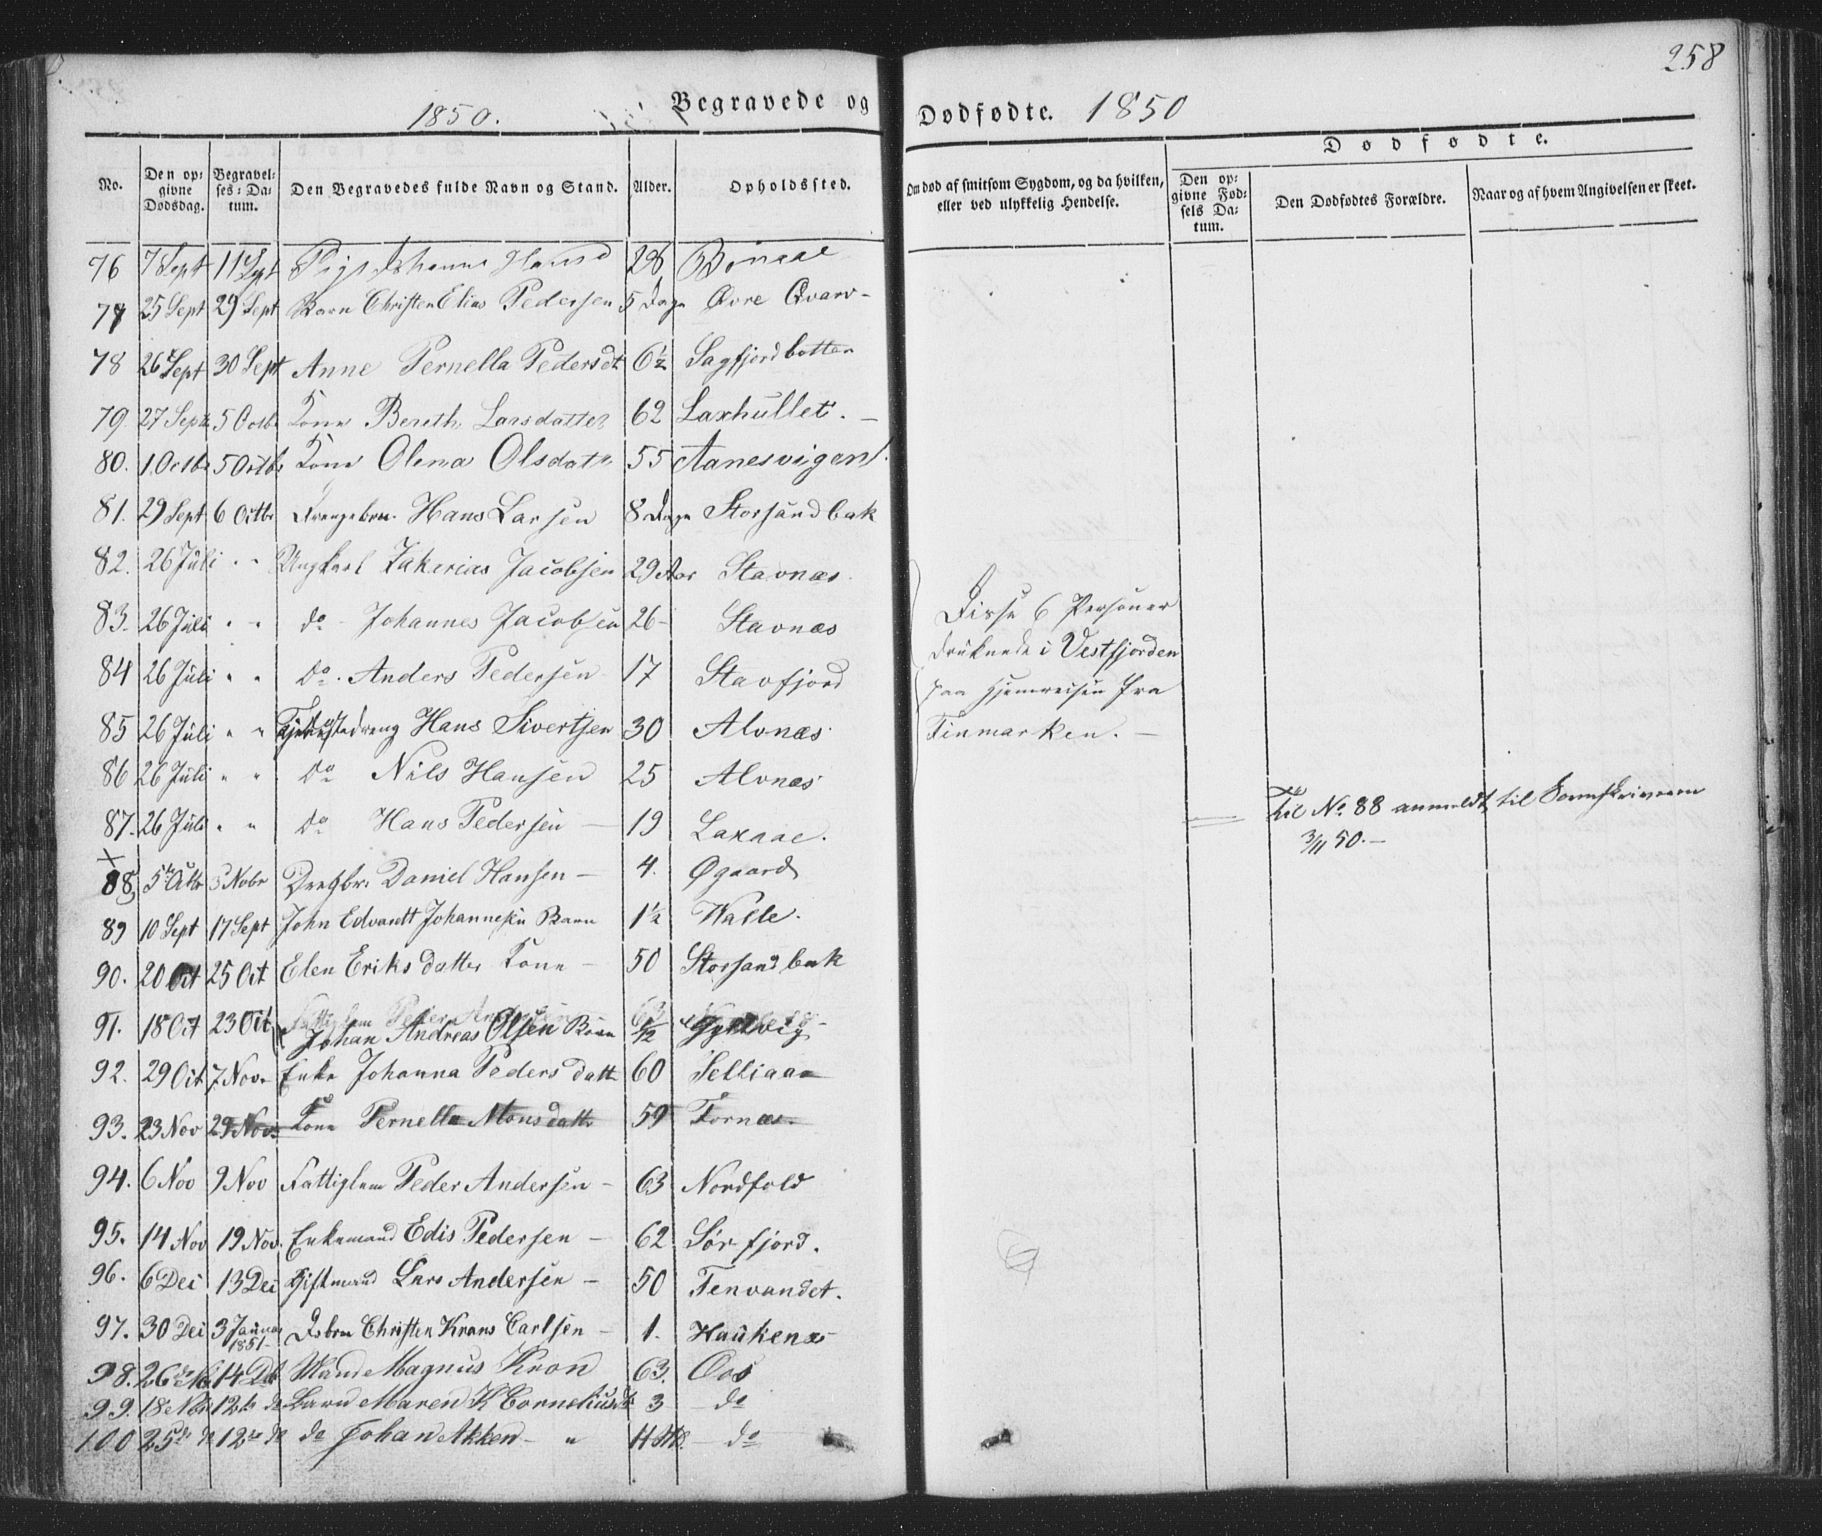 258
1850.
Begravede og Dødfødte. 1850
Dødfødte.
No.
Den op-
givne
Dødsdag.
Begravel-
ses-Da-
tum.
Den Begravedes fulde Navn og Stand.
Alder.
Opholdssted.
Om død af smitsom Sygdom, og da hvilken,
eller ved ulykkelig Hendelse.
Den op-
givne Fød-
sels Da-
tum.
Den Dødfødtes Forældre.
Naar og af hvem Angivelsen er skeet.
76 7 Sept 11 Sept Pige Johanna 28
77 25 Sept 29 Sept Barn Christen Elias Pedersen 5 Dage Øvre Qvarv-
78 26 Sept 30 Sept Anne Pernella Pedersdt 6½ Sagfjordbotten
79 27 Sept 5 Octbr Kone Bereth Larsdatter 62 Laxhullet.
80. 1. Octbr 5 Octbr Kone Olena Olsdatr 55 Aanesvigen
81. 29 Sept 6 Octbr Drengebrn. Hans Larsen 8 Dage Storsandbak
82. 26 Juli " " Ungkarl Zakerias Jacobsen 29 Aar Stavnæs
83. 26 Juli " " do - Johannes Jacobsen 26 - Stavnæs
84 26 Juli " " do. Anders Pedersen 17 Stavfjord
85 26 Juli " " Tjenestedreng Hans Sivertsen 30 Alvnæs
86 26 Juli " " do Nils Hansen 25 Alvnæs
87. 26 Juli " " do Hans Pedersen - 19 Laxaae.
Disse 6 Personer
druknede i Vestfjorden
paa Hjemreisen fra
Finmarken. -
Til No. 88 anmeldt til Sorenskriveren
3/11 50. -
88 5te Octbr 3 Nobr Drengbr. Daniel Hansen - 4. Øgaard
89 10 Sept 17 Sept John Edvardt Johannesen Barn 1½ Walle.
90. 20 Oct 25 Oct Elen Eriksdatter Kone - 50 Storsandbak
91. 18 Oct 23 Oct Johan Andreas Olsen Barn
92. 29 Oct 7 Nov. Enke Johanna Pedersdatt 60 Selliaae
93. 23 Nov 29 Nov. Kone Pernella Monsdatt 59 Fornæs.
94. 6 Nov 9 Nov Fattiglem Peder Andersen - 63 Nordfold
95. 14 Nov 19 Nov. Enkemand Edis Pedersen - 62 Sørfjord.
96. 6 Dec 13 Dec Giftmand Lars Andersen - 50 Tenvandet.
97. 30 Dec 3 Januar 1851 - Dsbrn Christen Krans Carlsen - 1. Haukenæs
98. 26 14 Mand Magnus Kron 63. Oos
99. 18 Nov 12te do Barn Maren K Corneliusdt 3 - do
100 25de do 12te do do Johan Akken - " - do